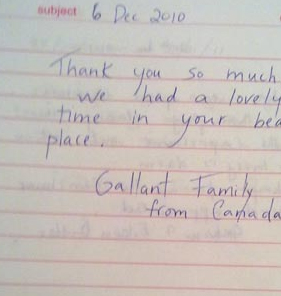 subject 6 Dec 2010
Thank you so much
We had a lovely
time in your
place.
Gallant Family
from Canada